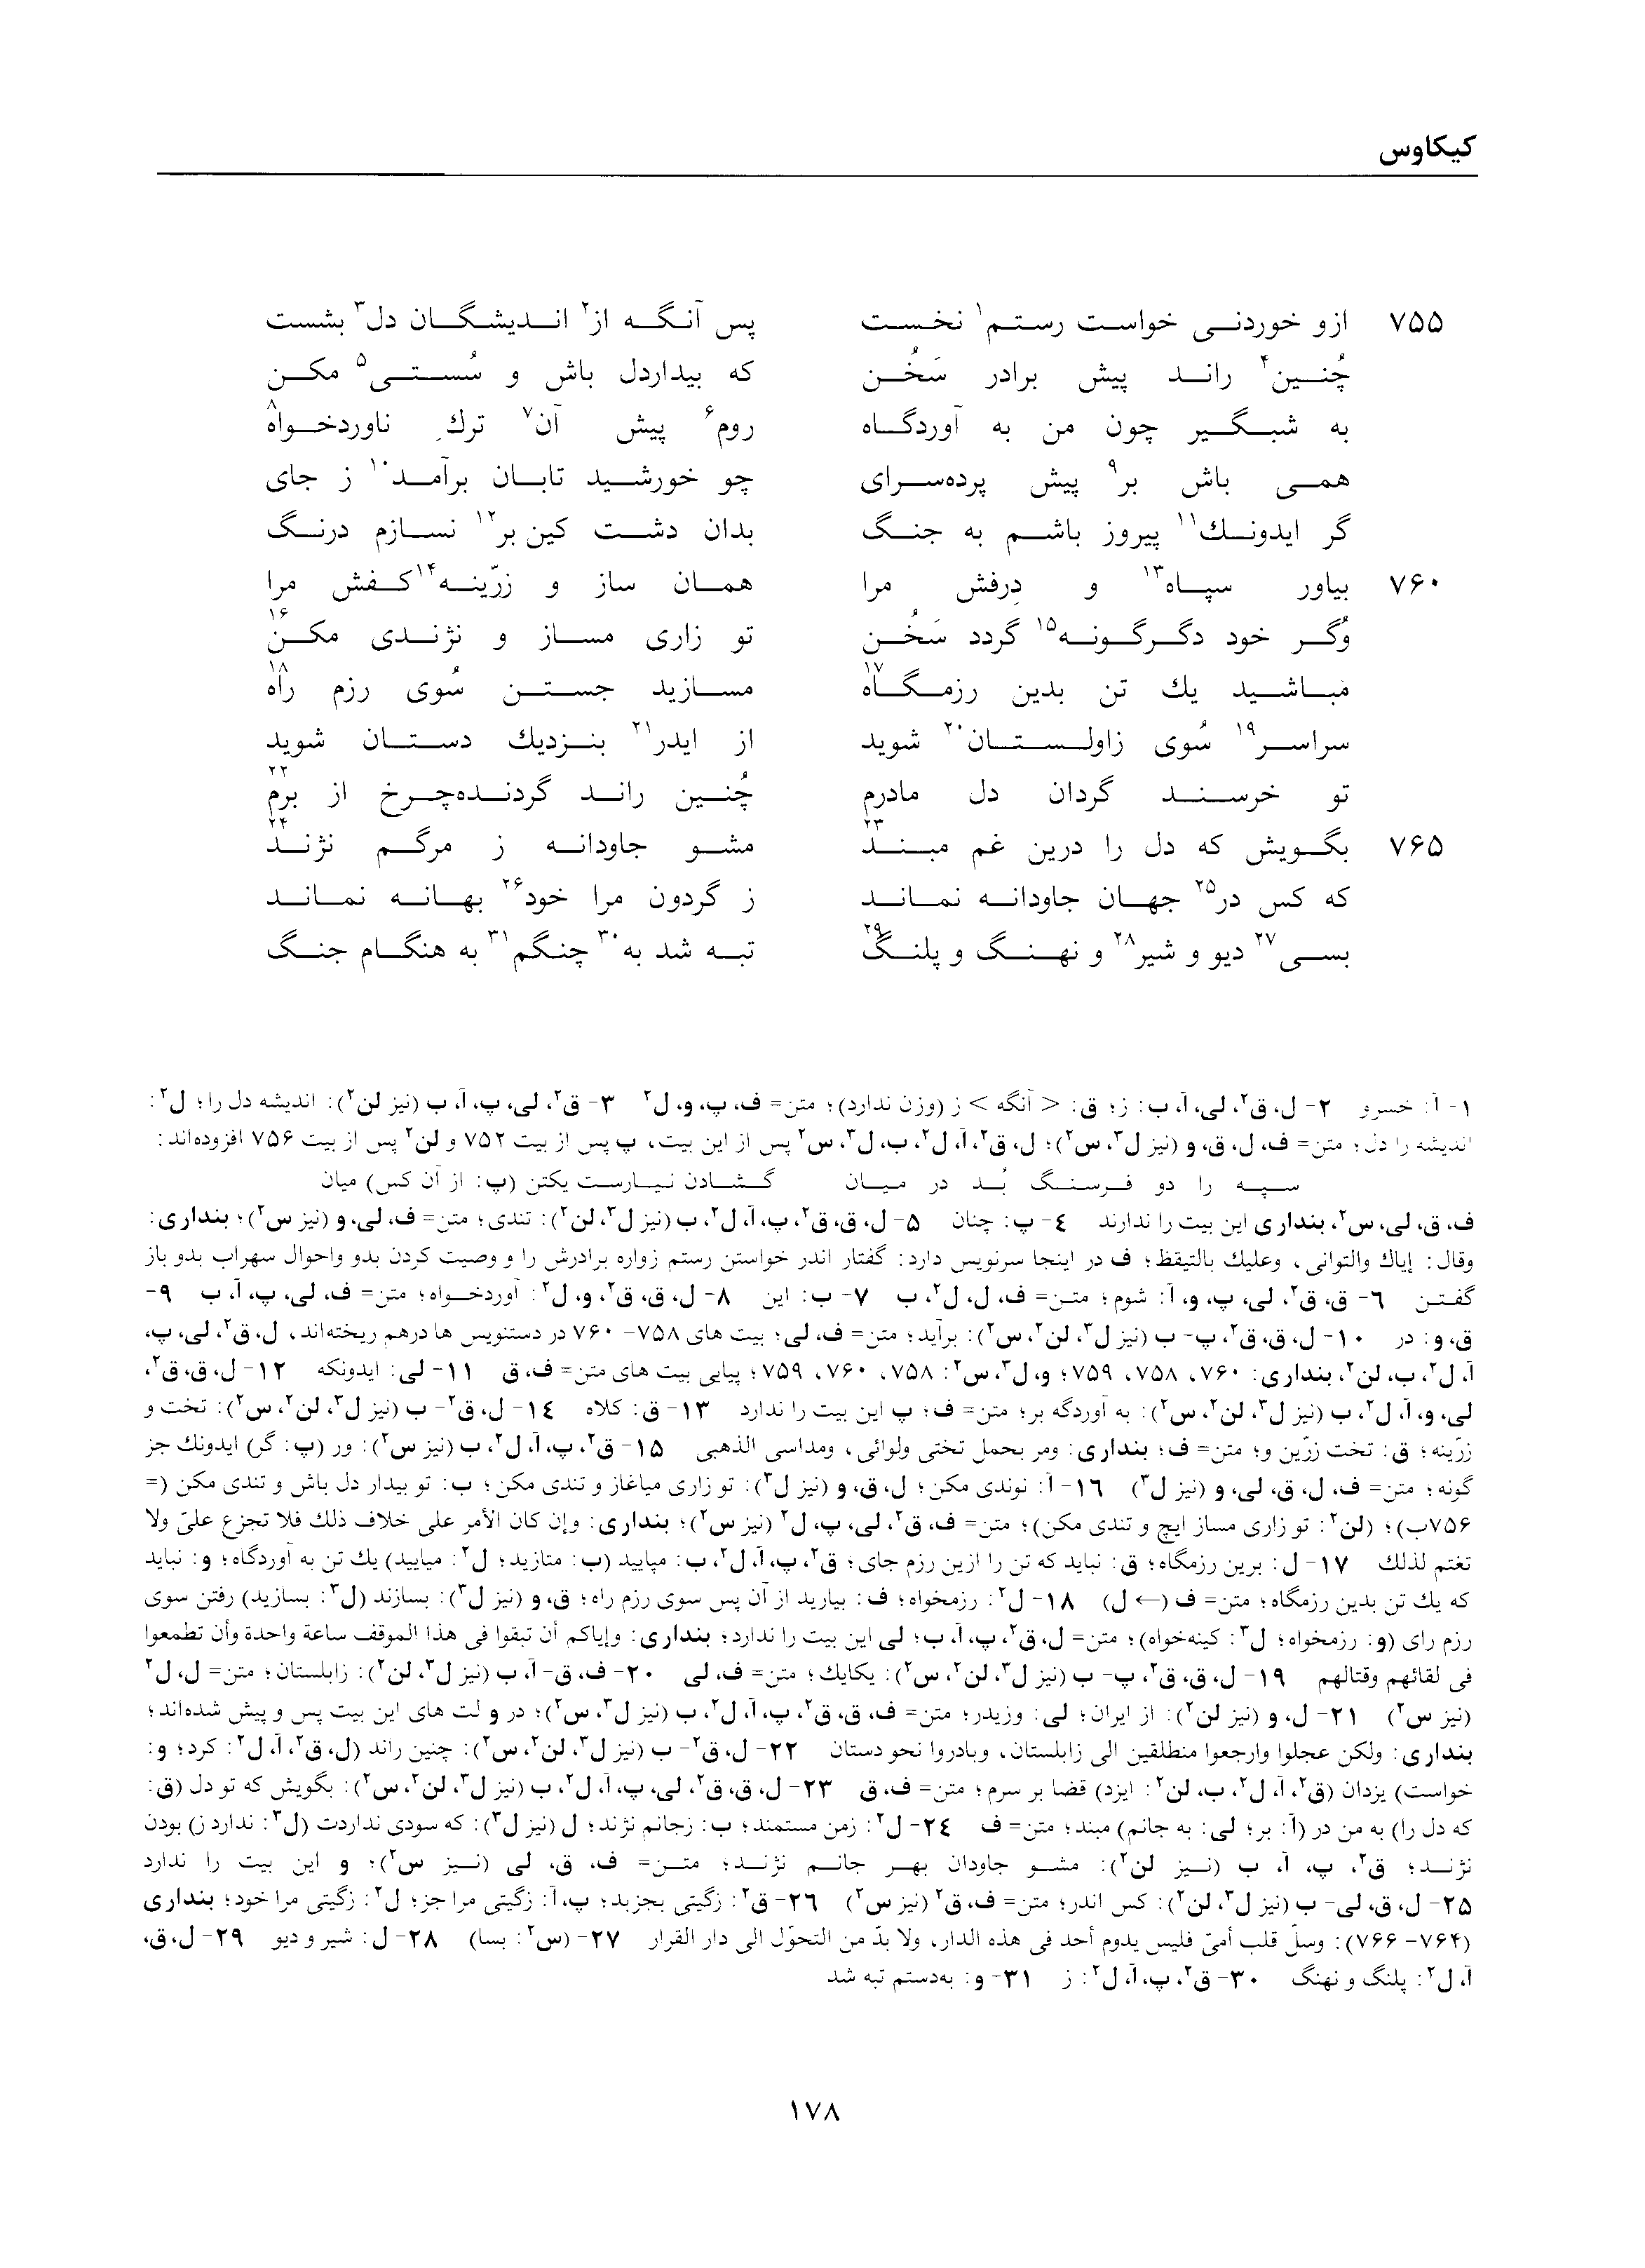 کیکاوس
۷۵۵ ازو خوردنی خواست رستم۱ نخست پس آنگه از۲ اندیشگان دل۳ بشست
چُنین۴ راند پیش برادر سَخُن که بیداردل باش و سُستی۵ مکن
به شبگیر چون من به آوردگاه روم۶ پیش آن۷ ترکِ ناوردخواه۸
همی باش بر۹ پیش پرده‌سرای چو خورشید تابان برآمد۱۰ ز جای
گر ایدونك۱۱ پیروز باشم به جنگ بدان دشت کین بر۱۲ نسازم درنگ
۷۶۰ بیاور سپاه۱۳ و دِرفش مرا همان ساز و زرّینه۱۴ کفش مرا
وُگر خود دگرگونه۱۵ گردد سَخُن تو زاری مساز و نژندی مکن۱۶
مَباشید یك تن بدین رزمگاه۱۷ مسازید جستن سُوی رزم راه۱۸
سراسر۱۹ سُوی زاولستان۲۰ شوید از ایدر۲۱ بنزدیك دستان شوید
تو خرسند گردان دل مادرم چُنین راند گردنده‌چرخ از برم۲۲
۷۶۵ بگویش که دل را درین غم مبند۲۳ مشو جاودانه ز مرگم نژند۲۴
که کس در۲۵ جهان جاودانه نماند ز گردون مرا خود۲۶ بهانه نماند
بسی۲۷ دیو و شیر۲۸ و نهنگ و پلنگ۲۹ تبه شد به۳۰ چنگم۳۱ به هنگام جنگ
۱- آ: خسرو ۲- ل، ق۲، لی، آ، ب: ز؛ ق: < آنگه > ز (وزن ندارد)؛ متن= ف، پ، و، ل۲ ۳- ق۲، لی، پ، آ، ب (نیز لن۲): اندیشه دل را؛ ل۲:
اندیشه را دل؛ متن= ف، ل، ق، و (نیز ل۳، س۲)؛ ل، ق۲، آ، ل۲، ب، ل۳، س۲ پس از این بیت، پ پس از بیت ۷۵۲ و لن۲ پس از بیت ۷۵۶ افزوده‌اند:
سپه را دو فرسنگ بُد در میان گشادن نیارست یکتن (پ: از آن کس) میان
ف، ق، لی، س۲، بنداری این بیت را ندارند ۴- پ: چنان ۵- ل، ق، ق۲، پ، آ، ل۲، ب (نیز ل۳، لن۲): تندی؛ متن= ف، لی، و (نیز س۲)؛ بنداری:
وقال: إیاك والتوانی، وعلیك بالتیقظ؛ ف در اینجا سرنویس دارد: گفتار اندر خواستن رستم زواره برادرش را و وصیت کردن بدو واحوال سهراب بدو باز
گفتن ۶- ق، ق۲، لی، پ، و، آ: شوم؛ متن= ف، ل، ل۲، ب ۷- ب: این ۸- ل، ق، ق۲، و، ل۲: آوردخواه؛ متن= ف، لی، پ، آ، ب ۹-
ق، و: در ۱۰- ل، ق، ق۲، پ- ب (نیز ل۳، لن۲، س۲): برآید؛ متن= ف، لی؛ بیت های ۷۵۸- ۷۶۰ در دستنویس ها درهم ریخته‌اند، ل، ق۲، لی، پ،
آ، ل۲، ب، لن۲، بنداری: ۷۶۰، ۷۵۸، ۷۵۹؛ و، ل۳، س۲: ۷۵۸، ۷۶۰، ۷۵۹؛ پیاپی بیت های متن= ف، ق ۱۱- لی: ایدونکه ۱۲- ل، ق، ق۲،
لی، و، آ، ل۲، ب (نیز ل۳، لن۲، س۲): به آوردگه بر؛ متن= ف؛ پ این بیت را ندارد ۱۳- ق: کلاه ۱۴- ل، ق۲- ب (نیز ل۳، لن۲، س۲): تخت و
زرّینه؛ ق: تخت زرّین و؛ متن= ف؛ بنداری: ومر بحمل تختی ولوائی، ومداسی الذهبی ۱۵- ق۲، پ، آ، ل۲، ب (نیز س۲): ور (پ: گر) ایدونك جز
گونه؛ متن= ف، ل، ق، لی، و (نیز ل۳) ۱۶- آ: نوندی مکن؛ ل، ق، و (نیز ل۳): تو زاری میاغاز و تندی مکن؛ ب: تو بیدار دل باش و تندی مکن (=
۷۵۶ب)؛ (لن۲: تو زاری مساز ایچ و تندی مکن)؛ متن= ف، ق۲، لی، پ، ل۲ (نیز س۲)؛ بنداری: وإن کان الأمر علی خلاف ذلك فلا تجزع علیّ ولا
تغتم لذلك ۱۷- ل: برین رزمگاه؛ ق: نباید که تن را ازین رزم جای؛ ق۲، پ، آ، ل۲، ب: مپایید (ب: متازید؛ ل۲: میایید) یك تن به آوردگاه؛ و: نباید
که یك تن بدین رزمگاه؛ متن= ف (← ل) ۱۸- ل۲: رزمخواه؛ ف: بیارید از آن پس سوی رزم راه؛ ق، و (نیز ل۳): بسازند (ل۳: بسازید) رفتن سوی
رزم رای (و: رزمخواه؛ ل۳: کینه‌خواه)؛ متن= ل، ق۲، پ، آ، ب؛ لی این بیت را ندارد؛ بنداری: وإیاکم أن تبقوا فی هذا الموقف ساعة واحدة وأن تطمعوا
فی لقائهم وقتالهم ۱۹- ل، ق، ق۲، پ- ب (نیز ل۳، لن۲، س۲): یکایك؛ متن= ف، لی ۲۰- ف، ق- آ، ب (نیز ل۳، لن۲): زابلستان؛ متن= ل، ل۲
(نیز س۲) ۲۱- ل، و (نیز لن۲): از ایران؛ لی: وزیدر؛ متن= ف، ق، ق۲، پ، آ، ل۲، ب (نیز ل۳، س۲)؛ در و لت های این بیت پس و پیش شده‌اند؛
بنداری: ولکن عجلوا وارجعوا منطلقین الی زابلستان، وبادروا نحو دستان ۲۲- ل، ق۲- ب (نیز ل۳، لن۲، س۲): چنین راند (ل، ق۲، آ، ل۲: کرد؛ و:
خواست) یزدان (ق۲، آ، ل۲، ب، لن۲: ایزد) قضا بر سرم؛ متن= ف، ق ۲۳- ل، ق، ق۲، لی، پ، آ، ل۲، ب (نیز ل۳، لن۲، س۲): بگویش که تو دل (ق:
که دل را) به من در (آ: بر؛ لی: به جانم) مبند؛ متن= ف ۲۴- ل۲: زمن مستمند؛ ب: زجانم نژند؛ ل (نیز ل۳): که سودی نداردت (ل۳: ندارد ز) بودن
نژند؛ ق۲، پ، آ، ب (نیز لن۲): مشو جاودان بهر جانم نژند؛ متن= ف، ق، لی (نیز س۲)؛ و این بیت را ندارد
۲۵- ل، ق، لی- ب (نیز ل۳، لن۲): کس اندر؛ متن= ف، ق۲ (نیز س۲) ۲۶- ق۲: زگیتی بجزبد؛ پ، آ: زگیتی مرا جز؛ ل۲: زگیتی مرا خود؛ بنداری
(۷۶۴- ۷۶۶): وسلّ قلب أمیّ فلیس یدوم أحد فی هذه الدار، ولا بدّ من التحوّل الی دار القرار ۲۷- (س۲: بسا) ۲۸- ل: شیر و دیو ۲۹- ل، ق،
آ، ل۲: پلنگ و نهنگ ۳۰- ق۲، پ، آ، ل۲: ز ۳۱- و: به‌دستم تبه شد
۱۷۸